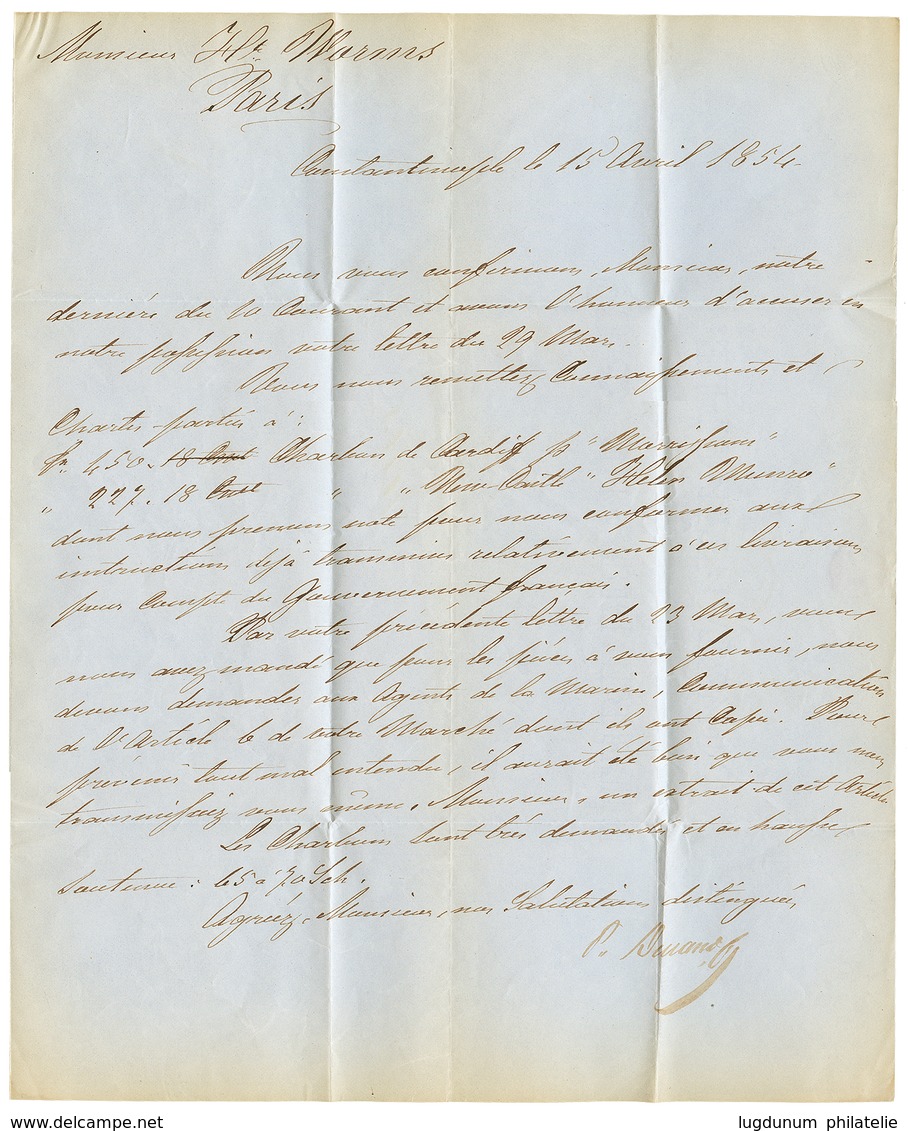 Monsieur Hte Worms
Paris
Constantinople le 15 Avril 1854
Nous vous confirmons, Monsieur, notre
dernière du 10 Courant et avons l'honneur d'accuser en
notre possession votre lettre du 29 Mars.
Vous nous remettez Connaissements et
Chartes parties à :
450 18 Charbon de Cardiff p "
" 227. 18 " " New Castle " Helen Munro "
dont nous prenons note pour nous conformer aux
instructions déjà transmises relativement à ces livraisons
pour compte du Gouvernement français.
Par votre précédente lettre du 23 Mars, vous
nous avez mandé que pour les pièces à vous fournir, nous
devons demander aux Agents de la Marine, Communication
de l'Article 6 de votre Marché dont ils ont Copie. Pour
prévenir tout mal entendu, il aurait été bien que vous nous
transmissiez vous même, Monsieur, un extrait de cet Article
Les Charbons sont très demandés et en hausse
soutenue : 65 à 70 Sch.
Agréez, Monsieur, nos Salutations distinguées
P.
lugdunum philatelie